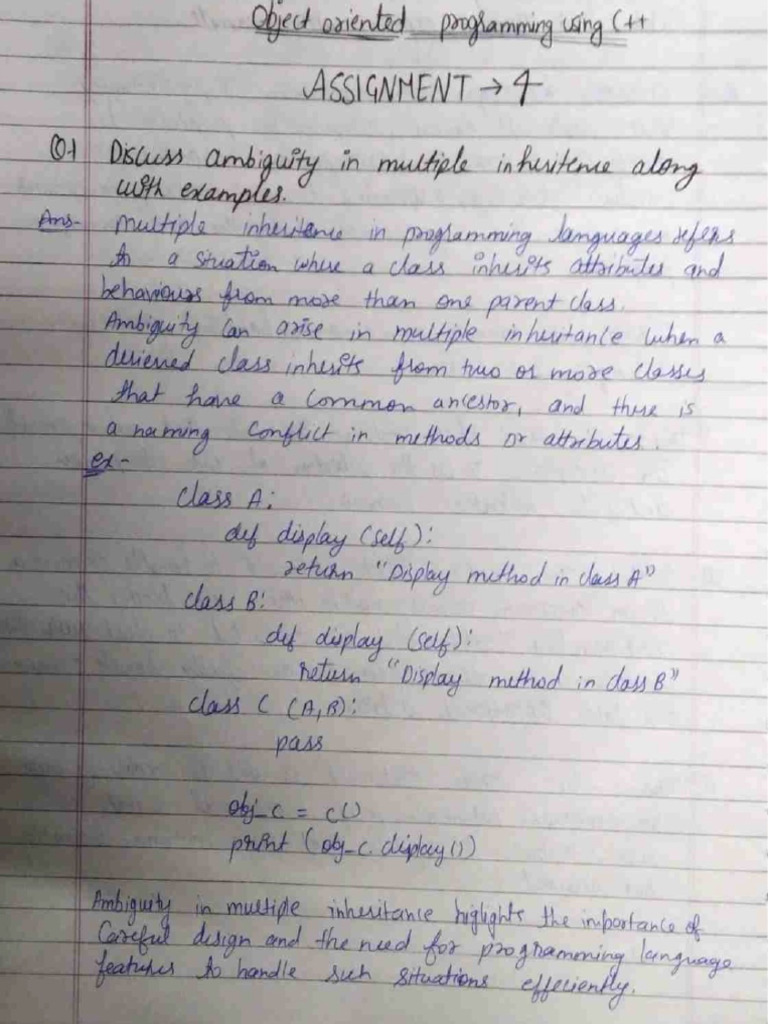 Object oriented programming using C++
ASSIGNMENT → 4
Q.1 Discuss ambiguity in multiple inheritence along
with examples.
Ans- Multiple inheritence in programming languages refers
to a situation where a class inherits attributes and
behaviours from more than one parent class.
Ambiguity can arise in multiple inheritance when a
derieved class inherits from two or more classes
that have a common ancestor, and there is
a naming conflict in methods or attributes.
ex-
class A:
def display (self):
return "Display method in class A"
class B:
def display (self):
return "Display method in class B"
class C (A,B):
pass
obj_c = c()
print (obj_c.display())
Ambiguity in multiple inheritance higlights the importance of
Careful design and the need for programming language
features to handle such situations effeciently.